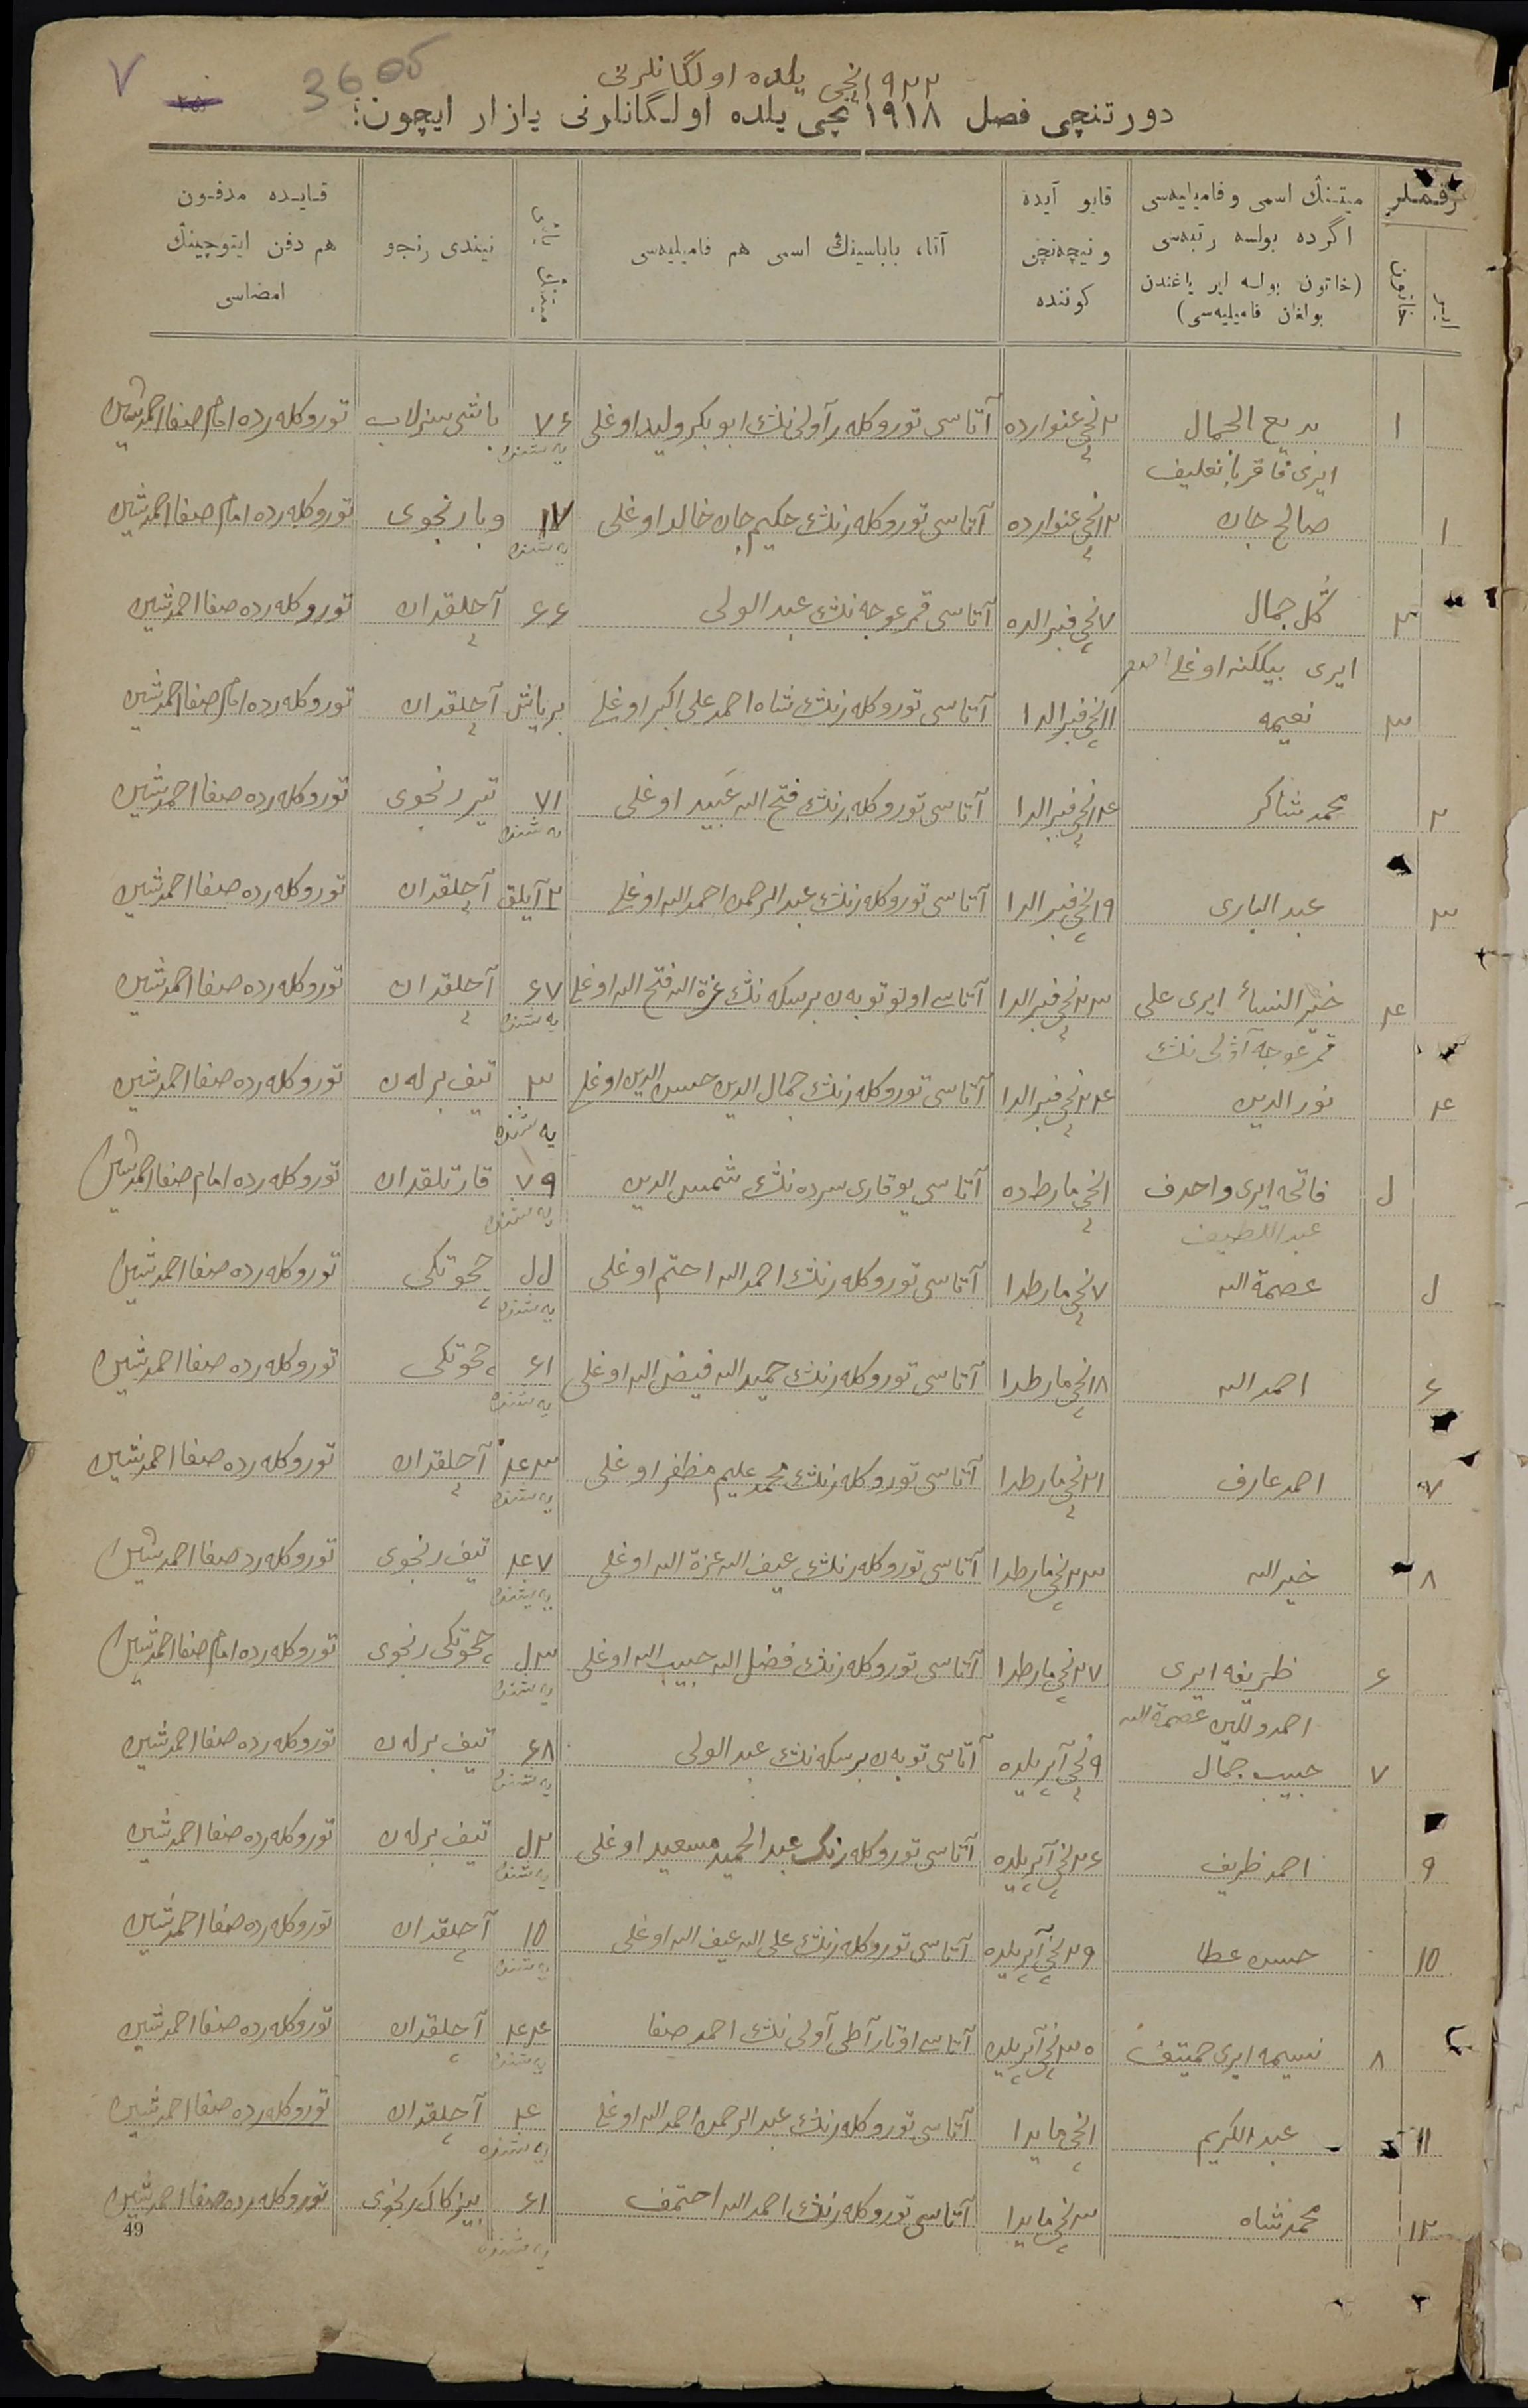 3606
۱۹۲۲ نچی یلده اولگانلرنی
دورتنچی فصل ۱۹۱۸ نچی یلده اولـگانلرنی یازار ایچون:
رقمـلر
میتـنڭ اسمی و فامیلیه‌سی اگرده بولسه رتبه‌سی (خاتون بولسه ایر یاغندن بولغان فامیلیه‌سی)
قایو آیده و نیچه‌نچی کوننده
آنا، باباسینڭ اسمی هم فامیلیه‌سی
نیندی رنجو
قـایـده مدفـون هم دفن ایتوچینڭ امضاسی
۱ بدیع الجمال ۲ نچی غنوارده آتاسی توروکله‌ر آولی‌نڭ ابو بکر ولید اوغلی ۷۶ یه‌شنده توروکله‌رده امام صفا احمدشین
۱ صالح جان ۱۲ نچی غنوارده آتاسی توروکله‌رنڭ حکیم جان خالد اوغلی ۱۷ یه‌شنده وبا رنجوی توروکله‌رده امام صفا احمدشین
۲ گل جمال ۷ نچی فبرالده آتاسی قمر عوجه‌نڭ عبد الولی ۶۶ آچلقدان توروکله‌رده صفا احمدشین
۳ نعیمه ۱۱ نچی فبرالدا آتاسی توروکله‌رنڭ شاه احمد علی اکبر اوغلی بر یاش آچلقدان توروکله‌رده امام صفا احمدشین
۲ محمد شاکر ۱۴ نچی فبرالدا آتاسی توروکله‌رنڭ فتح الله عبید اوغلی ۷۱ یه‌شنده تیر رنجوی توروکله‌رده صفا احمدشین
۳ عبد الباری ۱۹ نچی فبرالدا آتاسی توروکله‌رنڭ عبد الرحمن احمد الله اوغلی ۲ آیلق آچلقدان توروکله‌رده صفا احمدشین
۴ خیر النساء ایری علی ۲۳ نچی فبرالدا آتاسی اولو توبه‌ن برسکه‌نڭ عزة الله فتح الله اوغلی ۶۷ یه‌شنده آچلقدان توروکله‌رده صفا احمدشین
قمر عوجه آولی‌نڭ
۴ نور الدین ۲۴ نچی فبرالدا آتاسی توروکله‌رنڭ جمال الدین حسن الدین اوغلی ۳ یه‌شنده تیف برله‌ن توروکله‌رده صفا احمدشین
۵ فاتحه ایری واحدف ۱ نچی مارطده آتاسی یوقاری سرده‌نڭ شمس الدین ۷۹ یه‌شنده قارتلقدان توروکله‌رده امام صفا احمدشین
عبد اللطیف
۵ عصمة الله ۷ نچی مارطدا آتاسی توروکله‌رنڭ احمد الله احتم اوغلی ۵۵ یه‌شنده چحوتکی توروکله‌رده صفا احمدشین
۶ احمد الله ۱۸ نچی مارطدا آتاسی توروکله‌رنڭ حمید الله فیض الله اوغلی ۶۱ یه‌شنده چحوتکی توروکله‌رده صفا احمدشین
۷ احمد عارف ۲۱ نچی مارطدا آتاسی توروکله‌رنڭ محمد علیم مظفر اوغلی ۴۳ یه‌شنده آچلقدان توروکله‌رده صفا احمدشین
۸ خیر الله ۲۳ نچی مارطدا آتاسی توروکله‌رنڭ عیف الله عزة الله اوغلی ۴۷ یه‌شنده تیف رنجوی توروکله‌رده صفا احمدشین
۶ ظریفه ایری ۲۷ نچی مارطدا آتاسی توروکله‌رنڭ فضل الله حبیب الله اوغلی ۵۳ یه‌شنده چحوتکی رنجوی توروکله‌رده امام صفا احمدشین
۷ حبیب جمال ۹ نچی آپریلده آتاسی توبه‌ن برسکه‌نڭ عبد الولی ۶۸ یه‌شنده تیف برله‌ن توروکله‌رده صفا احمدشین
۹ احمد ظریف ۲۶ نچی آپریلده آتاسی توروکله‌رنڭ عبد الحمید سعید اوغلی ۵۲ یه‌شنده تیف برله‌ن توروکله‌رده صفا احمدشین
۱۰ حسن عطا ۲۹ نچی آپریلده آتاسی توروکله‌رنڭ علی الله عیف الله اوغلی ۱۵ یه‌شنده آچلقدان توروکله‌رده صفا احمدشین
۸ نسیمه ایری حمیتف ۳۰ نچی آپریلده آتاسی اوتار آطی آولی‌نڭ احمد صفا ۴۴ یه‌شنده آچلقدان توروکله‌رده صفا احمدشین
۱۱ عبد الکریم ۱ نچی مایدا آتاسی توروکله‌رنڭ عبد الرحمن احمد الله اوغلی ۴ یه‌شنده آچلقدان توروکله‌رده صفا احمدشین
۱۲ محمد شاه ۳ نچی مایدا آتاسی توروکله‌رنڭ احمد الله احتمف ۶۱ یه‌شنده بیزکاک رنجوی توروکله‌رده صفا احمدشین
49